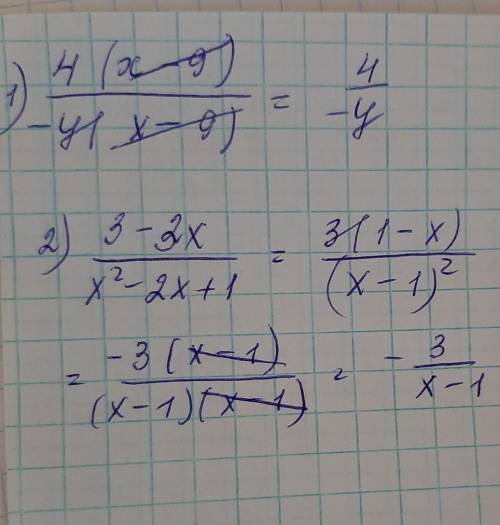 1) 4(x-9) / -y(x-9) = 4 / -y
2) 3-3x / x²-2x+1 = 3(1-x) / (x-1)²
= -3(x-1) / (x-1)(x-1) = - 3 / x-1